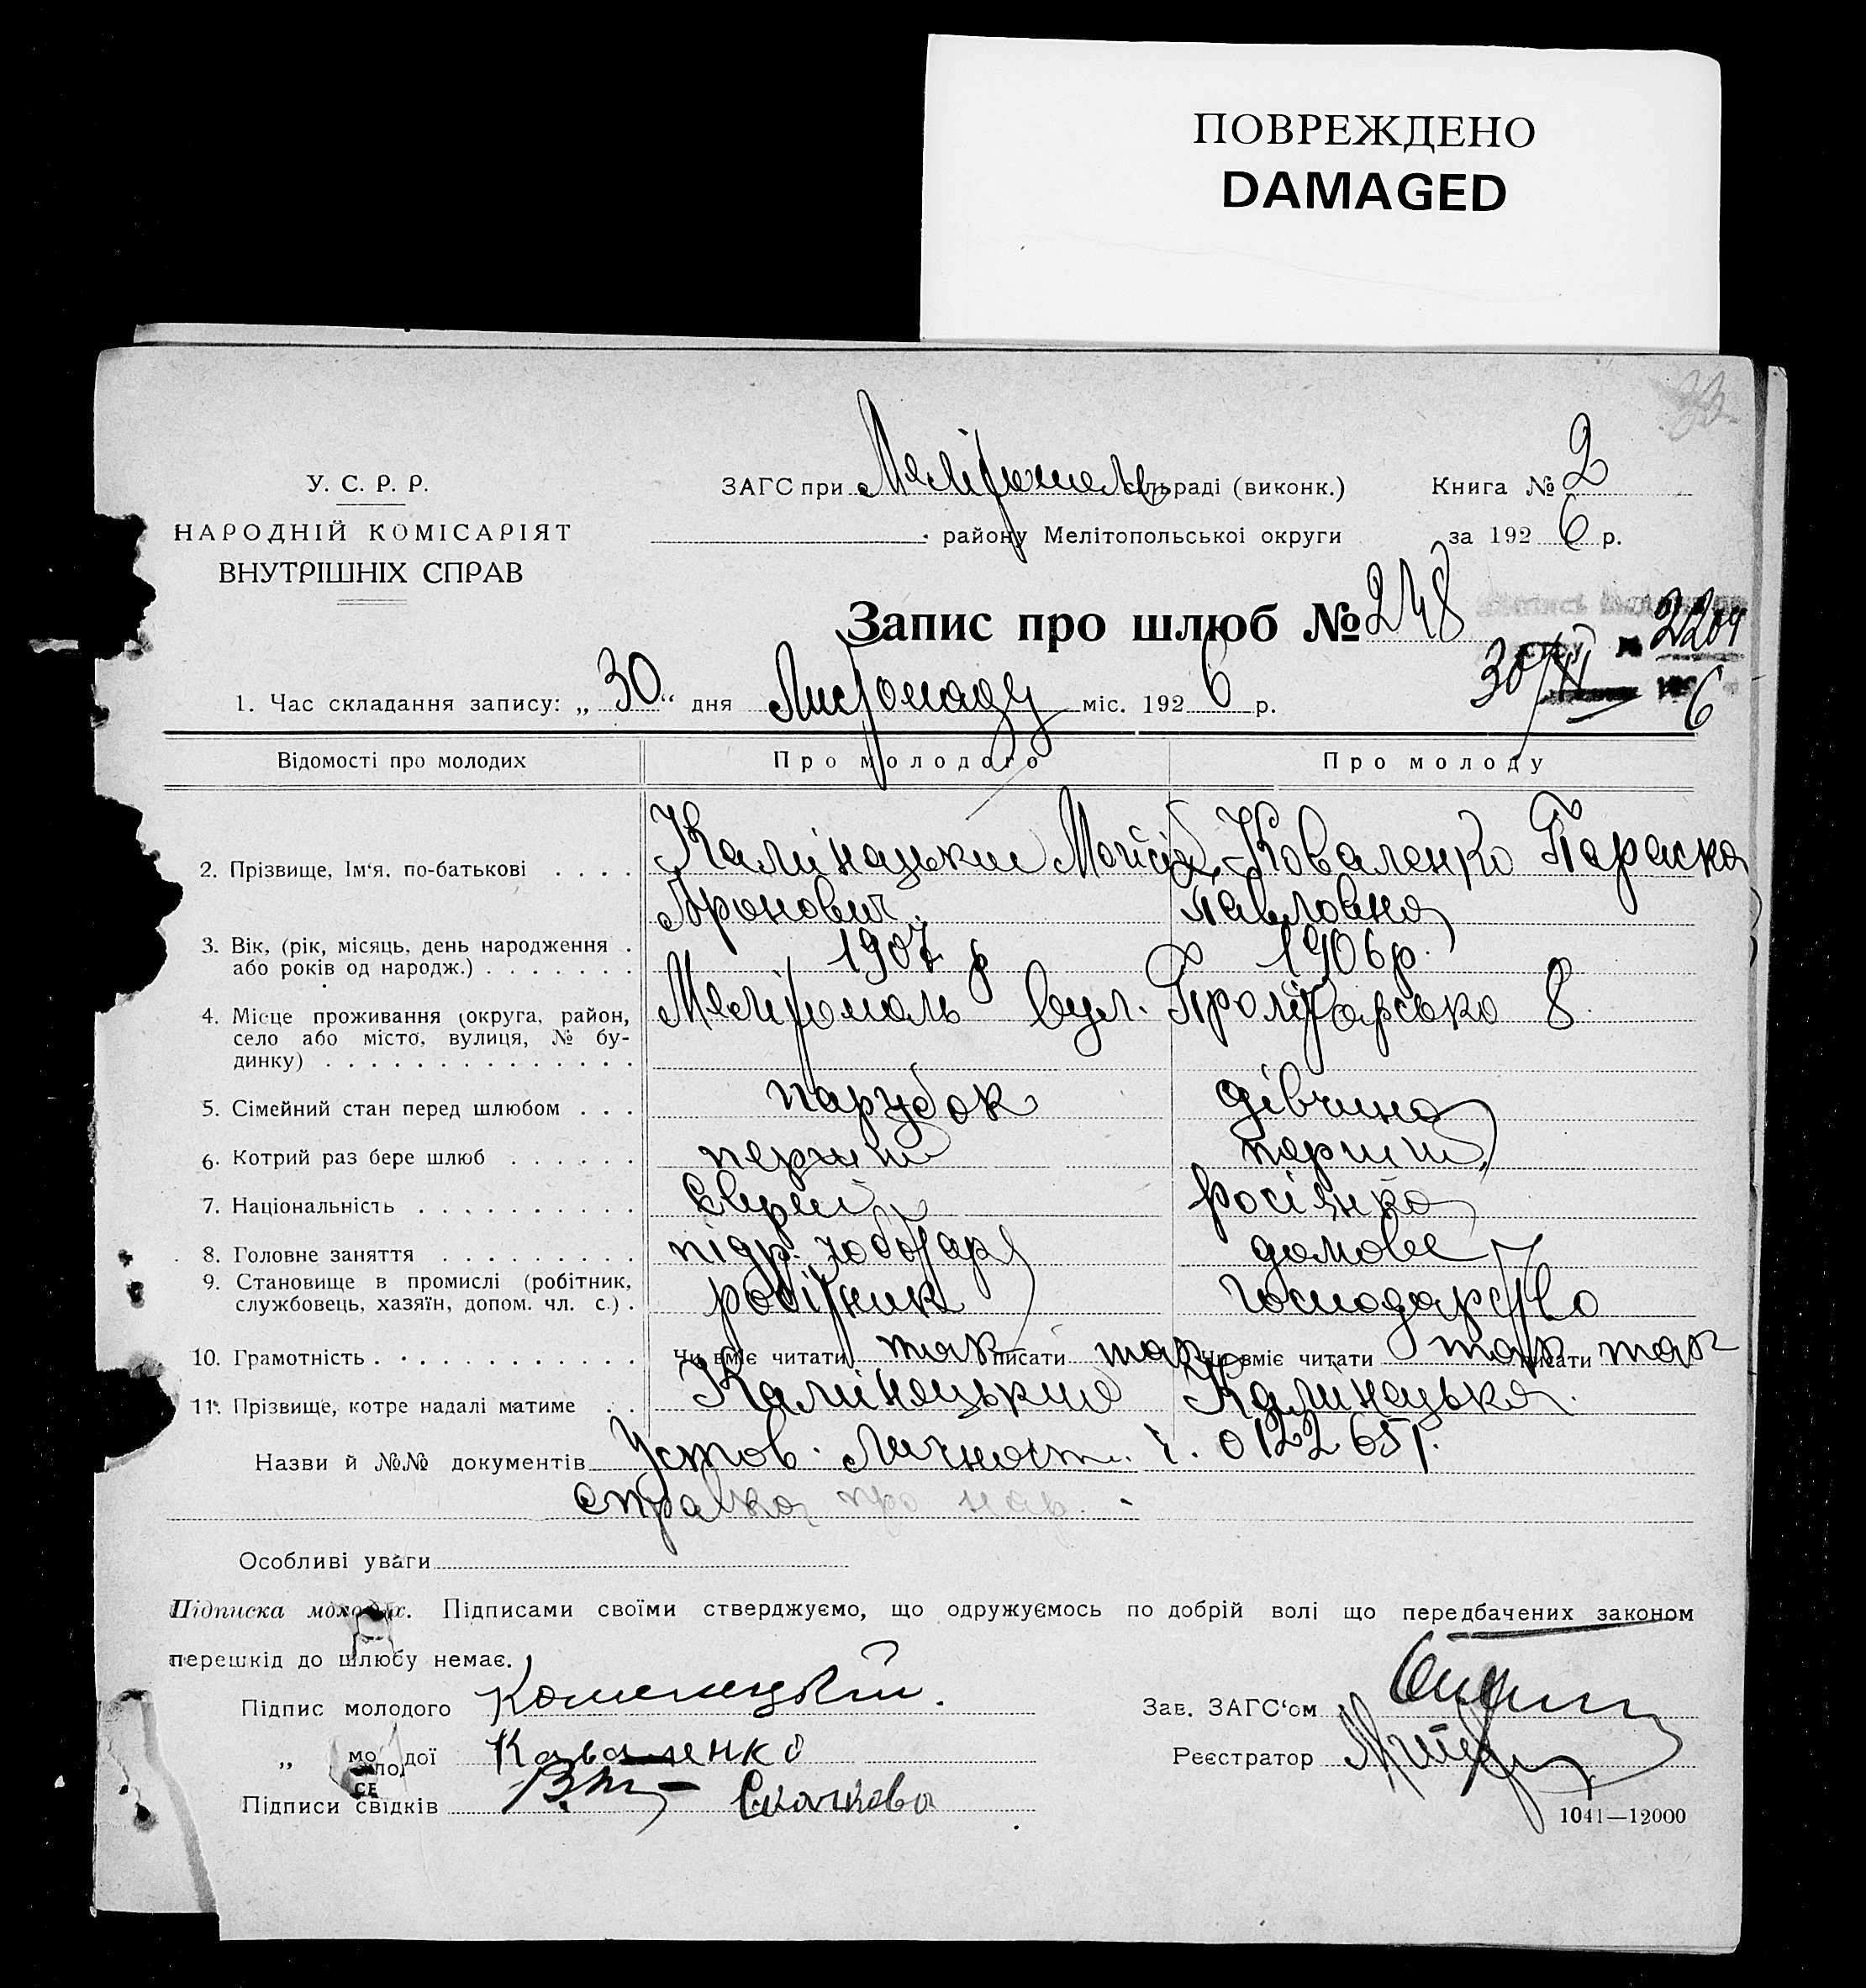 ПОВРЕЖДЕНО
DAMAGED
У. С. Р. Р.
НАРОДНІЙ КОМІСАРІЯТ
ВНУТРІШНІХ СПРАВ
ЗАГС при сільраді (виконк.)
району Мелітопольської округи
Книга № 2
за 1926 р.
Запис про шлюб № 248
30/XI
6
1. Час складання запису: „30“ дня Листопаду міс. 1926 р.
Відомості про молодих Про молодого Про молоду
2. Прізвище, Ім'я, по-батькові . . . . Калінацький Мойсій Коваленко Параска
Аронович. Павловна
3. Вік, (рік, місяць, день народження . 1907 р 1906 р.
або років од народж.) . . . . . . .
4. Місце проживання (округа, район, Мелітополь вул. Пролітарська 8
село або місто, вулиця, № бу-
динку) . . . . . . . . . . . . . .
5. Сімейний стан перед шлюбом . . . парубок дівчина
6. Котрий раз бере шлюб . . . . . . перший перший
7. Національність . . . . . . . . . . Єврей росіянка
8. Головне заняття . . . . . . . . . підр. чоботаря домове
9. Становище в промислі (робітник, робітник господарство
службовець, хазяїн, допом. чл. с.) .
10. Грамотність . . . . . . . . . . . . Чи вміє читати так писати так Чи вміє читати так писати так
11. Прізвище, котре надалі матиме . . Калінацький Калінацька.
Назви й №№ документів Устов. личност. ч. 0122651.
справка про нар.
Особливі уваги
Підписка молодих. Підписами своїми стверджуємо, що одружуємось по добрій волі що передбачених законом
перешкід до шлюбу немає.
Підпис молодого
„ молодої Коваленко
Підписи свідків Скачкова
Зав. ЗАГС'ом
Реєстратор
1041—12000